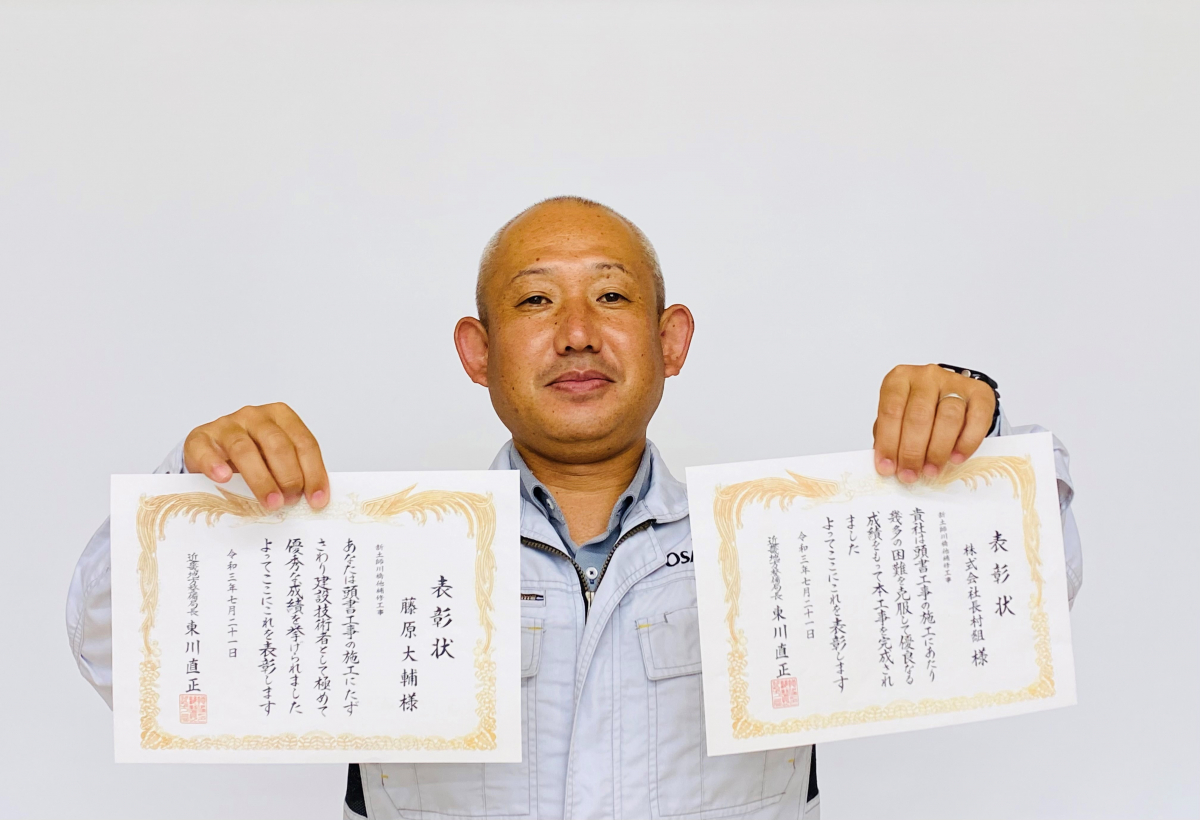 表彰状
藤原大輔様
新土師川橋他補修工事
あなたは頭書工事の施工にたず
さわり建設技術者として極めて
優秀な成績を挙げられました
よってここにこれを表彰します
令和三年七月二十一日
近畿地方整備局長 東川直正
OSA
表彰状
株式会社長村組 様
新土師川橋他補修工事
貴社は頭書工事の施工にあたり
幾多の困難を克服して優良なる
成績をもって本工事を完成され
ました
よってここにこれを表彰します
令和三年七月二十一日
近畿地方整備局長 東川直正